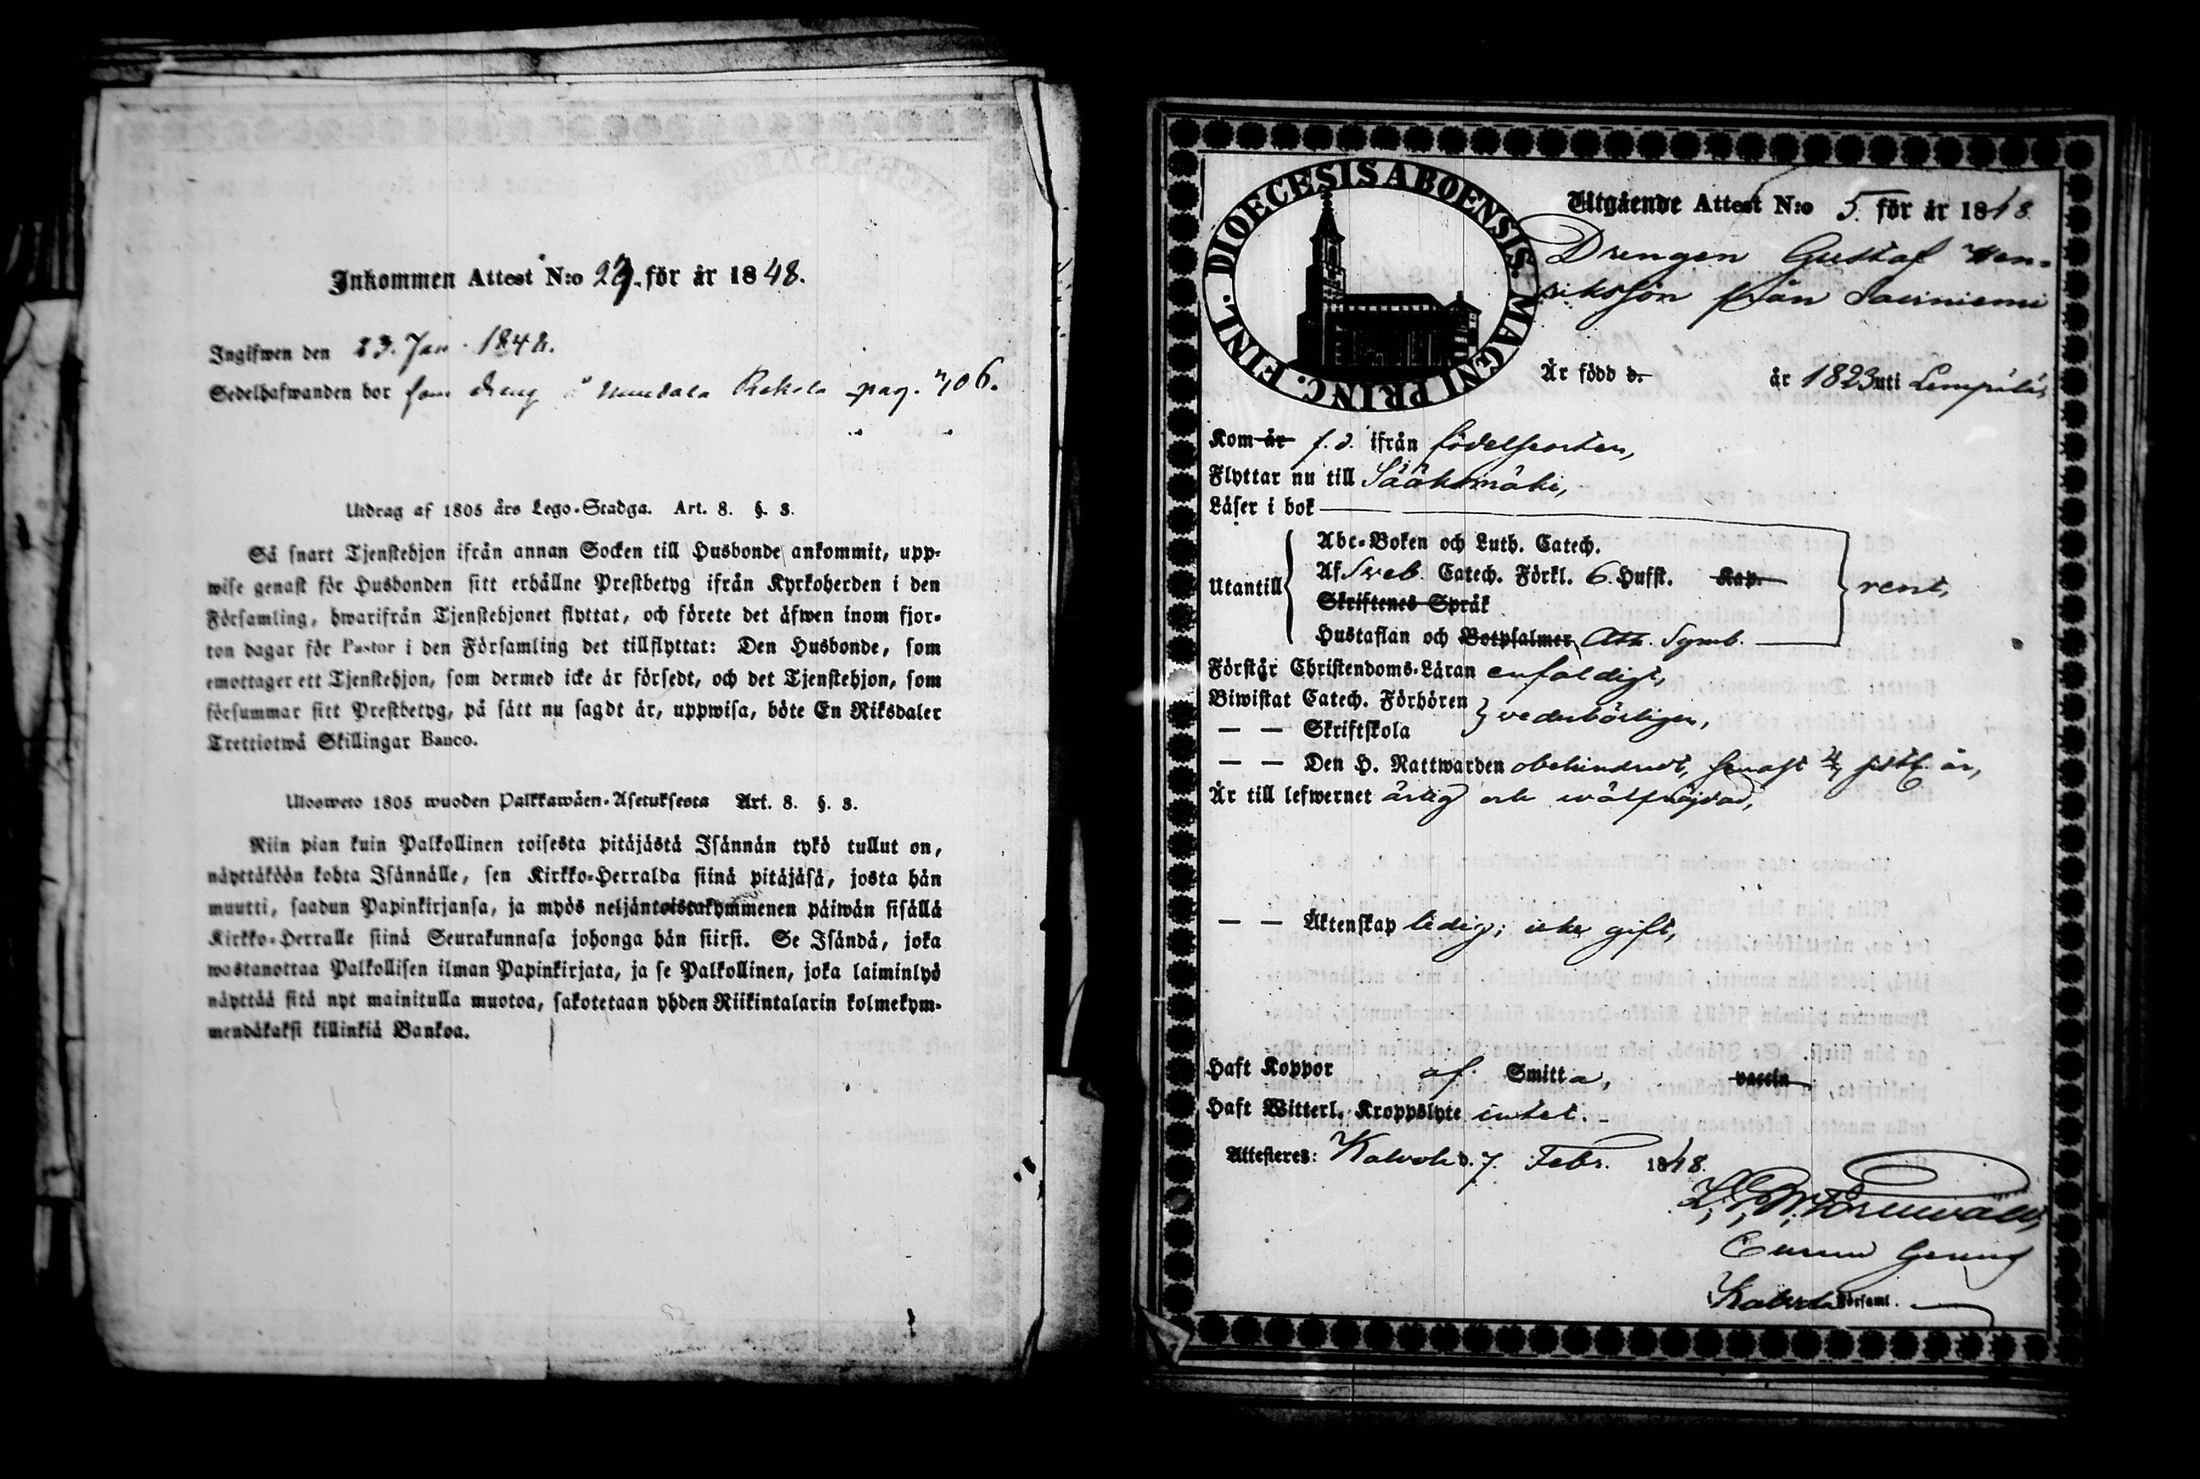 Inkommen Attest N:o 27. för år 1848.
Ingifwen den 23. Jan. 1848.
Sedelhafwanden bor som dreng å Rekola pag. 706.
Utdrag af 1805 års Lego-Stadga. Art. 8. §. 3.
Så snart Tjenstehjon ifrån annan Socken till Husbonde ankommit, upp-
wise genast för Husbonden sitt erhållne Prestbetyg ifrån Kyrkoherden i den
Församling, hwarifrån Tjenstehjonet flyttat, och förete det äfwen inom fjor-
ton dagar för Pastor i den Församling det tillflyttat: Den Husbonde, som
emottager ett Tjenstehjon, som dermed icke är försedt, och det Tjenstehjon, som
försummar sitt Prestbetyg, på sätt nu sagdt är, uppwisa, böte En Riksdaler
Trettiotwå Skillingar Banco.
Ulosweto 1805 wuoden Palkkawäen-Asetuksesta Art. 8. §. 3.
Niin pian kuin Palkollinen toisesta pitäjästä Isännän tykö tullut on,
näyttäköön kohta Isännälle, sen Kirkko-Herralda siinä pitäjäsä, josta hän
muutti, saadun Papinkirjansa, ja myös neljäntoistakymmenen päiwän sisällä
Kirkko-Herralle siinä Seurakunnasa johonga hän siirsi. Se Isändä, joka
wastanottaa Palkollisen ilman Papinkirjata, ja se Palkollinen, joka laiminlyö
näyttää sitä nyt mainitulla muotoa, sakotetaan yhden Riikintalarin kolmekym-
mendäkaksi killinkiä Bankoa.
DIOECESIS ABOENSIS. MAGNI PRINC. FINL.
Utgående Attest N:o 5. för år 1848.
Drengen Gustaf Hen-
riksson från Sauniemi
Är född d. år 1823 uti Lempälä,
Kom år f. d. ifrån födelseorten,
Flyttar nu till Sääksmäki,
Läser i bok
Abc-Boken och Luth. Catech.
Utantill Af Sveb. Catech. Förkl. 6. Hufst. Kap. rent,
Skriftenes Språk
Hustaflan och Botpsalmer, Ath. Symb.
Förstår Christendoms-Läran enfaldigt,
Biwistat Catech. Förhören vederbörligen,
— — Skriftskola
— — Den H. Nattwarden obehindradt, senast sistl. år,
Är till lefwernet ärlig och wälfrejdad,
— — Äktenskap ledig; icke gift,
Haft Koppor af Smitta, vaccin
Haft Witterl. Kroppslyte intet.
Attesteres: Kalvola d. 7. Febr. 1848.
i Kalvola Församl.